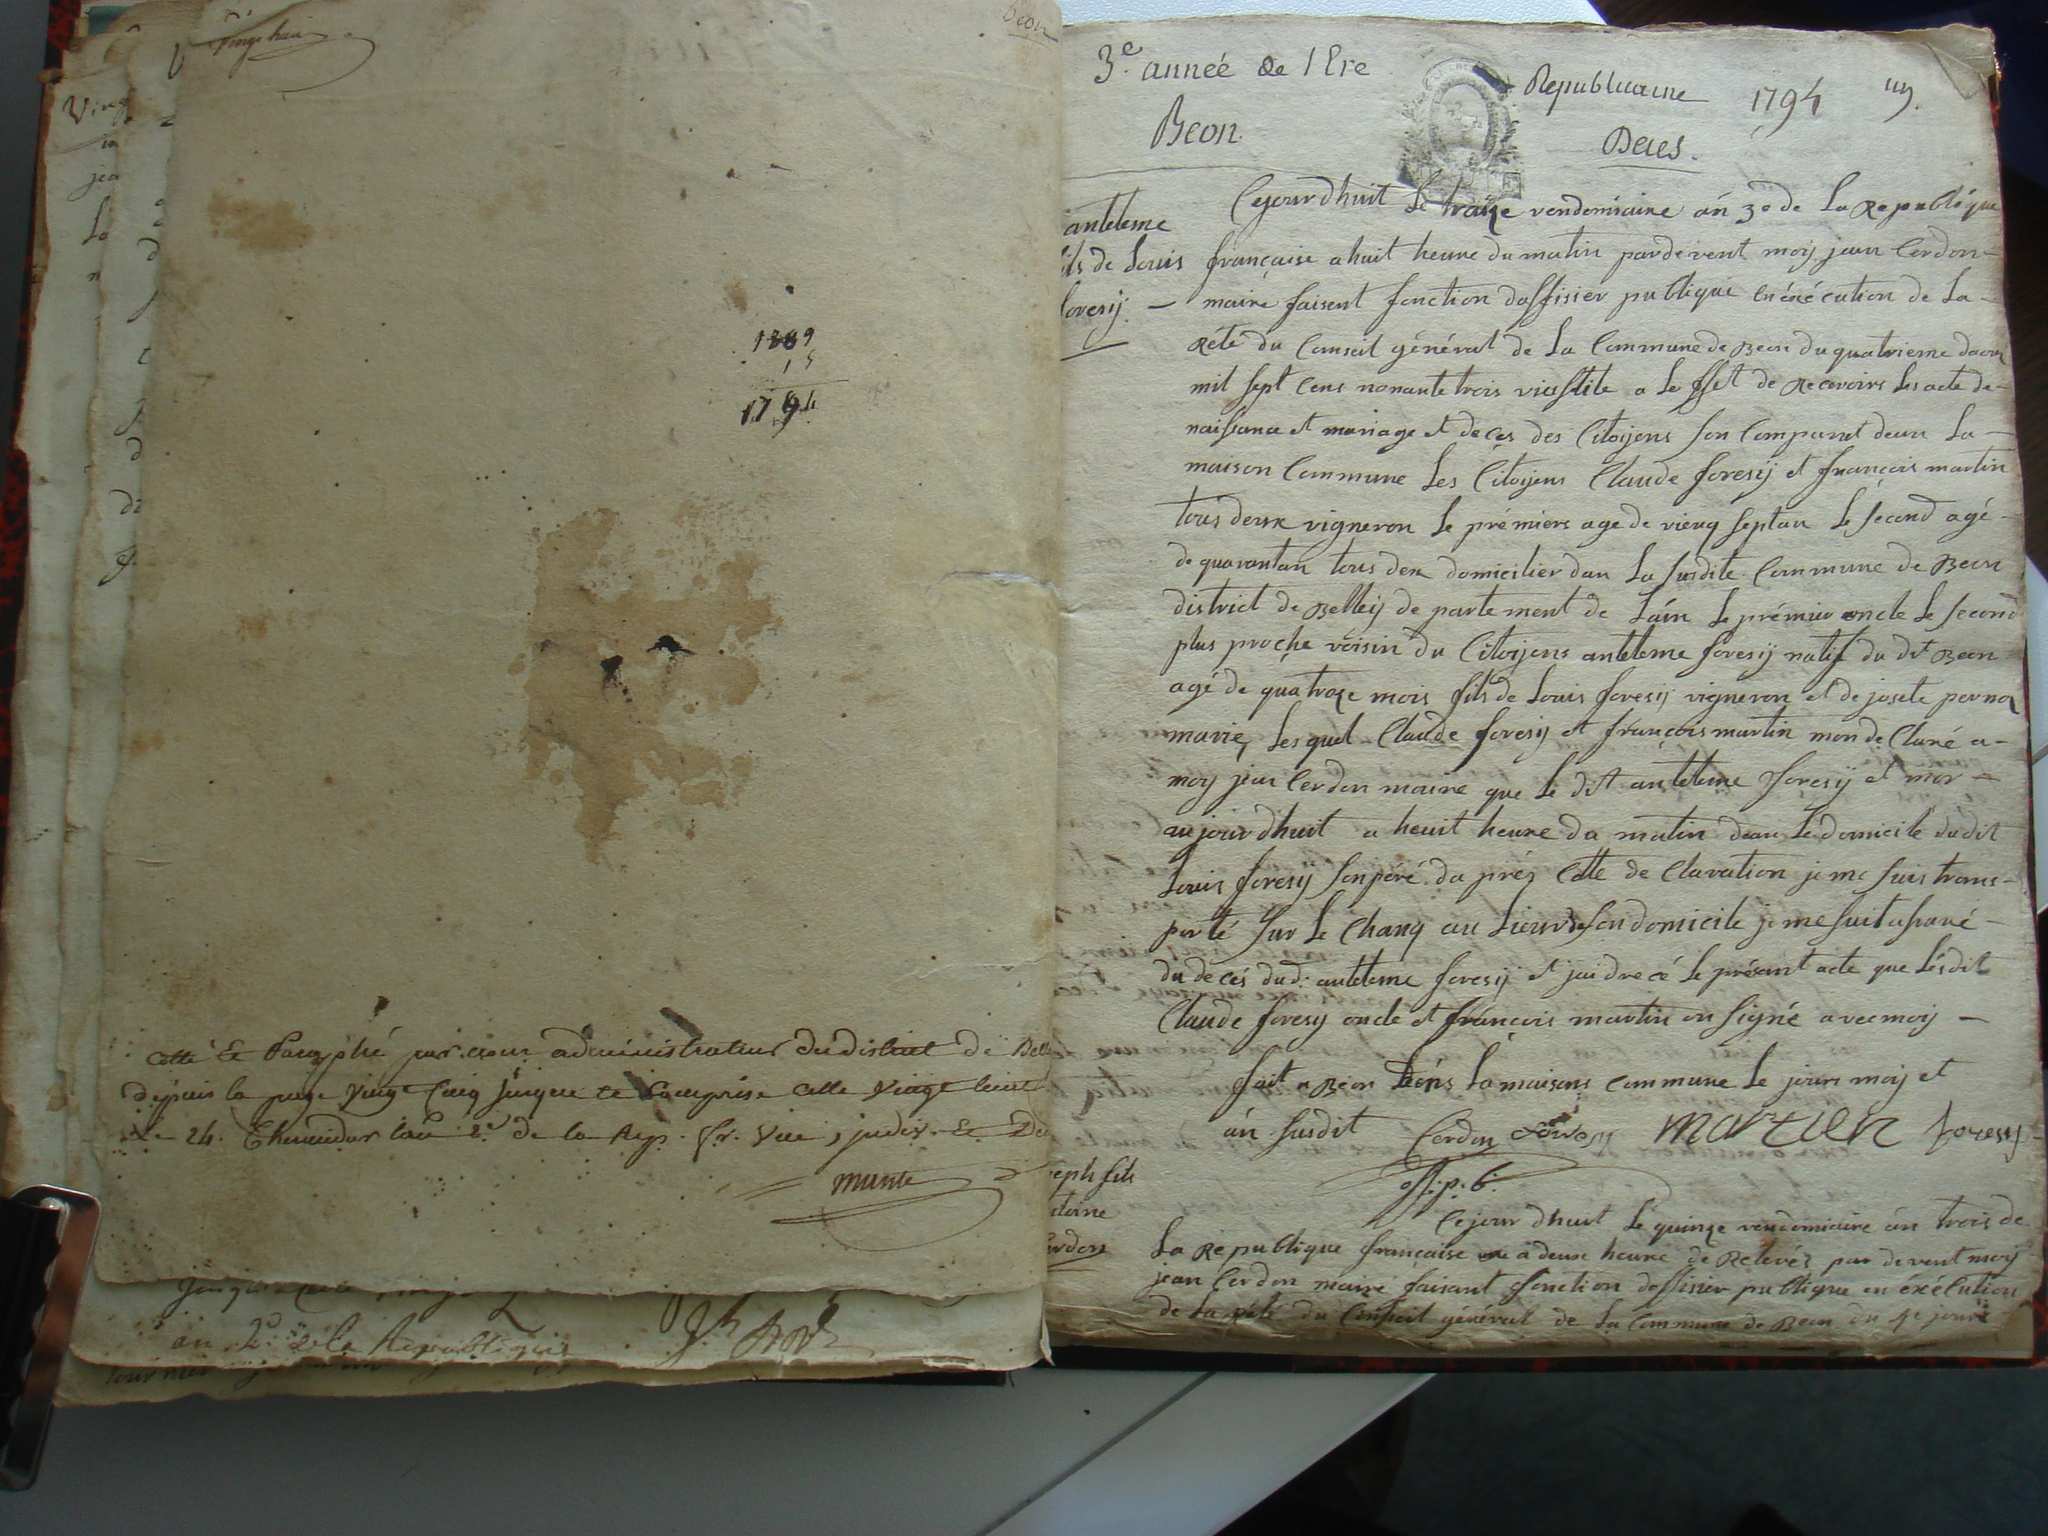 Beon
1789
15
1794
Cotté & Paraphé par nous administrateur du district de Bell
depuis la page vingt cinq jusques et comprise celle vingt huit
le 24. Thermidor l'an 2e de la Rep. fr. une, indiv. &
an 2d de la Republique
3e année de l'Ere Republicaine 1794
Beon Deces.
antelme
fils de Louis
foresÿ. —
Cejourdhuit Le traize vendemiaire án 3e de La Republique
française a huit heure du matin pardevent moy jean Cerdon
maire faisent fonction doffisier publique en éxécution de La-
Rété du Conseil général de La Commune de Beon du quatrieme
mil sept Cens nonante trois a Leffet de Recevoirs Les acte de
naissance et mariage et deces des Citoyens son Comparut dean La
maison Commune Les Citoyens Claude foresÿ et françois martin
tous deux vigneron Le prémiers age de vienq septan Le second agé
de quarantan tous deu domicilier dan La susdite Commune de Beon
district de Belleÿ de partement de Láin Le prémier oncle Le second
plus proche voisin du Citoyens antelme foresÿ natif du dt Beon
agé de quatroze mois fils de Louis foresÿ vigneron et de josete
marie, Lesquel Claude foresÿ et françois martin mon de Claré a
moy jean Cerdon maire que Le dit antelme foresÿ et mor
aujourdhuit a heuit heure da matin dean Le domicile dudit
Louis foresÿ son péré da prés Cette de Claration je me suis trans-
porté sur Le Chanq au Lieux de son domicile je me suit asuré
du decés dud: antelme foresÿ et jai drecé Le présant acte que Lésdit
Claude foresy oncle et françois martin on signé avec moy —
fait a Beon Déns La maisons Commune Le jours moy et
án susdit Cerdon martien foresy
off. p. b.
joseph fils
Cerdon
Cejour dhuit Le quinze vendemiaire án trois de
La République française a deux heure de Relevés par devent moy
jean Cerdon mairé faisant fonction doffisier publique en éxécution
de La rété du Conseil général de La Commune de Beon du 4e jours